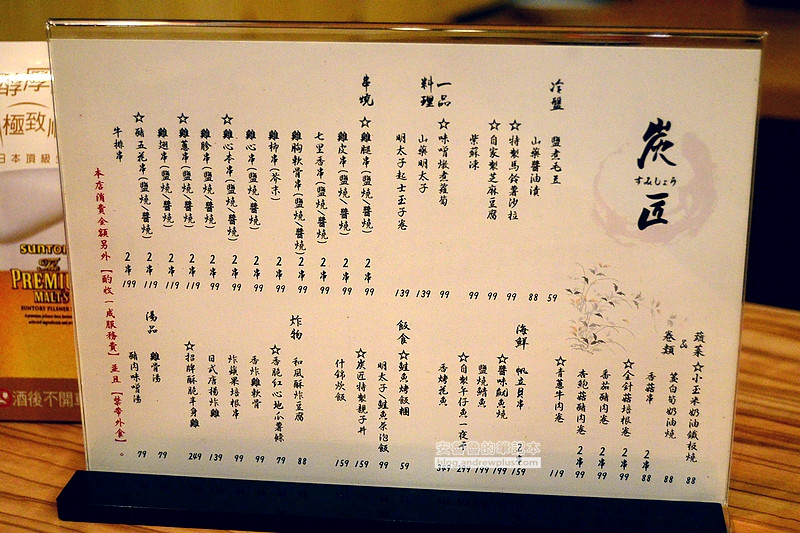 炭匠
すみしょう
冷盤
鹽煮毛豆 59
山藥醬油漬 88
☆特製馬鈴薯沙拉 59
☆自家製芝麻豆腐 99
紫蘇凍 99
一品料理
☆味噌燉煮蘿蔔 99
山藥明太子 139
明太子起士玉子卷 139
串燒
☆雞腿串(鹽燒/醬燒) 2串 99
雞皮串(鹽燒/醬燒) 2串 99
七里香串(鹽燒/醬燒) 2串 99
雞胸軟骨串(鹽燒/醬燒) 2串 99
雞柳串(芥末) 2串 99
雞心串(鹽燒/醬燒) 2串 99
☆雞心本串(鹽燒/醬燒) 2串 99
雞胗串(鹽燒/醬燒) 2串 199
☆雞蔥串(鹽燒/醬燒) 2串 119
雞翅串(鹽燒/醬燒) 2串 119
☆豬五花串(鹽燒/醬燒) 2串 119
牛排串 2串 199
本店消費金額另外【酌收一成服務費】並且【禁帶外食】。
蔬菜品卷類
☆小玉米奶油鐵板燒 88
茭白筍奶油燒 88
香菇串 2串 88
☆金針菇培根卷 2串 99
番茄豬肉卷 2串 99
杏鮑菇豬肉卷 2串 99
☆青蔥牛肉卷 119
海鮮
帆立貝串 2串 159
☆醬味魷魚燒 199
鹽燒鯖魚 199
☆自製午仔魚一夜干 299
香烤花魚 349
飯食
☆鮭魚烤飯糰 59
明太子/鮭魚茶泡飯 99
☆炭匠特製親子丼 159
什錦炊飯 159
炸物
和風酥炸豆腐 88
☆香脆紅心地瓜薯條 79
香炸雞軟骨 99
炸蘋果培根串 99
日式唐揚炸雞 139
☆招牌酥脆半身雞 249
湯品
雞骨湯 79
豬肉味噌湯 79
醇厚
極致
日本頂級
SUNTORY
The
PREMIUM
MALT'S
SUNTORY PILSNER
酒後不開車
安魯魯的筆記本
blog.andrewplus.com